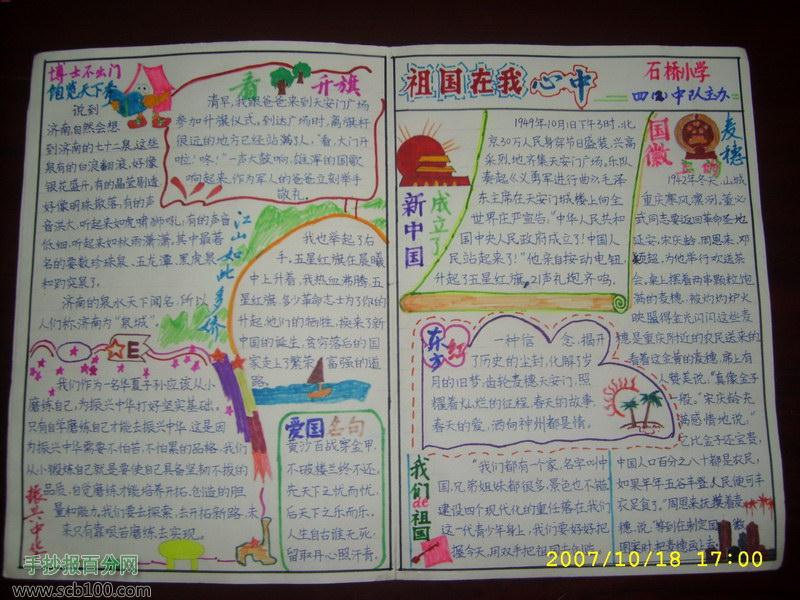 博士不出门
饱览天下奇
说到
济南,自然会想
到济南的七十二泉,这些
泉有的白浪翻滚,好像
银花盛开,有的晶莹剔透
好像明珠散落,有的声
音洪大,听起来如虎啸狮吼,有的声音
低细,听起来如秋雨潇潇,其中最著
名的要数珍珠泉、五龙潭、黑虎泉
和趵突泉了。
济南的泉水天下闻名,所以
人们称济南为“泉城”。
看升旗
清早,我跟爸爸来到天安门广场
参加升旗仪式,到达广场时,离旗杆
很远的地方已经站满了人,“看,大门开
啦!咚!”一声大鼓响,雄浑的国歌
响起来,作为军人的爸爸立刻举手
敬礼。
江山如此多娇
我也举起了右
手,五星红旗在晨曦
中上升着,我热血沸腾,五
星红旗,多少革命志士为了你的
升起,他们的牺牲,换来了新
中国的诞生,贫穷落后的国
家走上了繁荣富强的道
路。
E
我们作为一名华夏子孙应该从小
磨练自己,为振兴中华打好坚实基础。
只有自军磨练自己才能去振兴中华,这是因
为振兴中华需要不怕苦,不怕累的品格,我们
从小锻炼自己就是要使自己具备坚韧不拔的
品质,自觉磨练才能培养开拓、创造的胆
量和能力,我们要去探索,去开拓新路,未
来只有靠艰苦磨练去实现。
振兴中华
爱国名句
黄沙百战穿金甲,
不破楼兰终不还。
先天下之忧而忧,
后天下之乐而乐。
人生自古谁无死,
留取丹心照汗青。
祖国在我心中
石桥小学
四(2)中队主办
新中国
成立了
1949年10月1日下午3时,北
京30万人民身穿节日盛装,兴高
采烈地齐集天安门广场,乐队
奏起《义勇军进行曲》,毛泽
东主席在天安门城楼上向全
世界庄严宣告:“中华人民共和
国中央人民政府成立了!中国人
民站起来了!”他亲自按动电钮,
升起了五星红旗,21声礼炮齐鸣。
国徽上的麦穗
1942年冬天,山城
重庆寒风凛冽,董必
武同志要返回革命圣地
延安,宋庆龄、周恩来、邓
颖超,为他举行欢送茶
会。桌上摆着两串颗粒饱
满的麦穗,被灼灼炉火
映照得金光闪闪这些麦
穗是重庆附近的农民送来的
看着这金黄的麦穗,席上有
人赞美说,“真像金子
一般。”宋庆龄充
满感情地说,“
它比金子还宝贵,
中国人口百分之八十都是农民,
如果年年五谷丰登,人民便可丰
衣足食了。”周恩来抚摸着麦
穗,说:“等到
东方红
一种信念,揭开
了历史的尘封,化解了岁
月的旧梦,齿轮麦穗天安门,照
耀着灿烂的征程,春天的故事,
春天的爱,洒向神州都是情。
我们de祖国
“我们都有一个家,名字叫中
国,兄弟姐妹都很多,景色也不错,
建设四个现代化的重任落在我们
这一代青少年身上,我们要好好把
握今天,用双手把祖国
2007/10/18 17:00
手抄报百分网
www.scb100.com